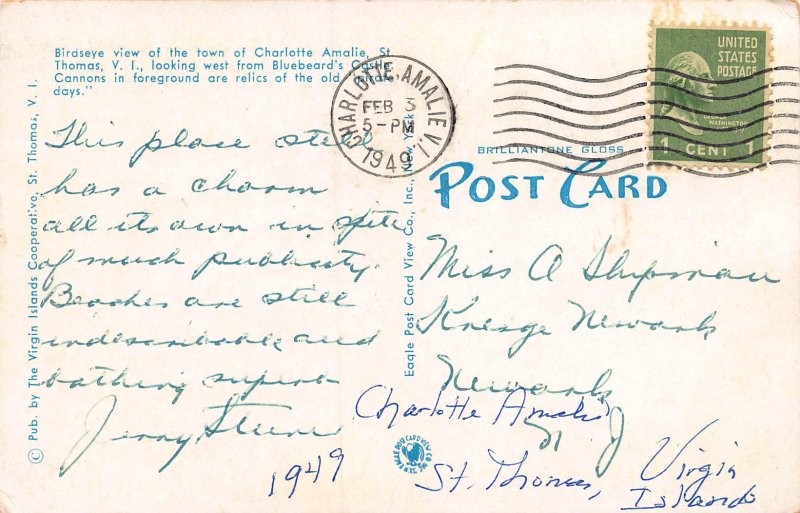 Birdseye view of the town of Charlotte Amalie, St.
Thomas, V. I., looking west from Bluebeard's Castle.
Cannons in foreground are relics of the old "pirate
days."
This place still
has a charm
all its own in spite
of much publicity.
Beaches are still
indescribable and
bathing superb
Jerry
1949
© Pub. by The Virgin Islands Cooperative, St. Thomas, V. I.
Eagle Post Card View Co., Inc., New York
CHARLOTTE AMALIE V.I.
FEB 3
5-PM
1949
BRILLIANTONE GLOSS
POST CARD
UNITED
STATES
POSTAGE
GEORGE
WASHINGTON
1 CENT 1
Miss A Shipman
Kresge Newark
Newark
N J
Charlotte Amalie
St. Thomas, Virgin
Islands